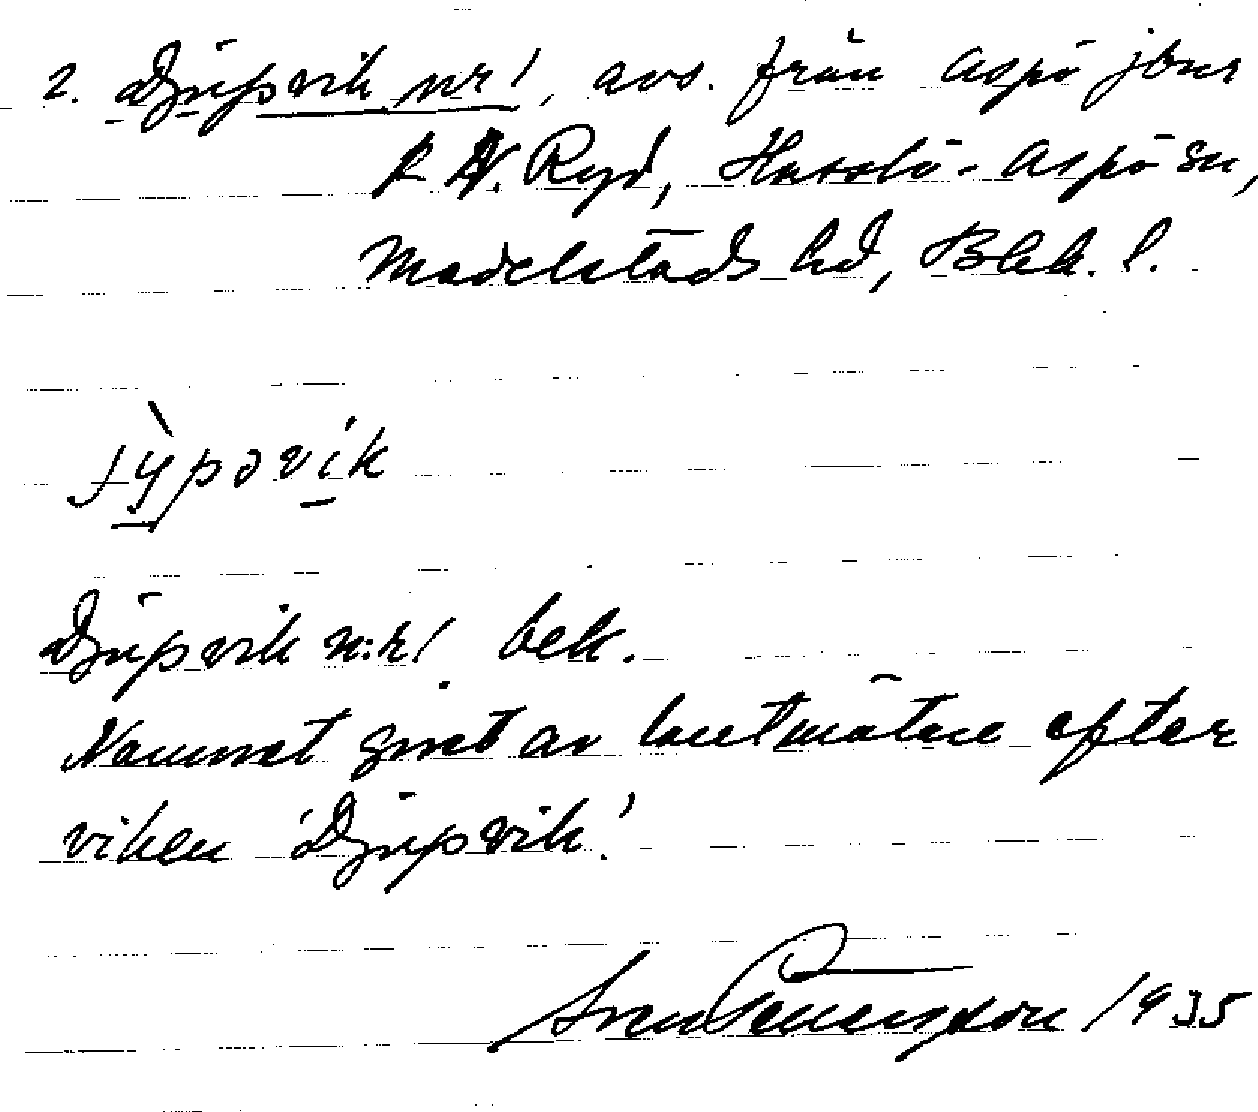 2. Djupsvik nr 1, avs. från Aspö jbns
R. N. Ryd, Hasslö-Aspö sn,
Medelstads hd, Blek. l.
jỳpəvik
Djupsvik n:r 1 bek.
Namnet givet av lantmätare efter
viken 'Djupsvik'.
Sven 1935